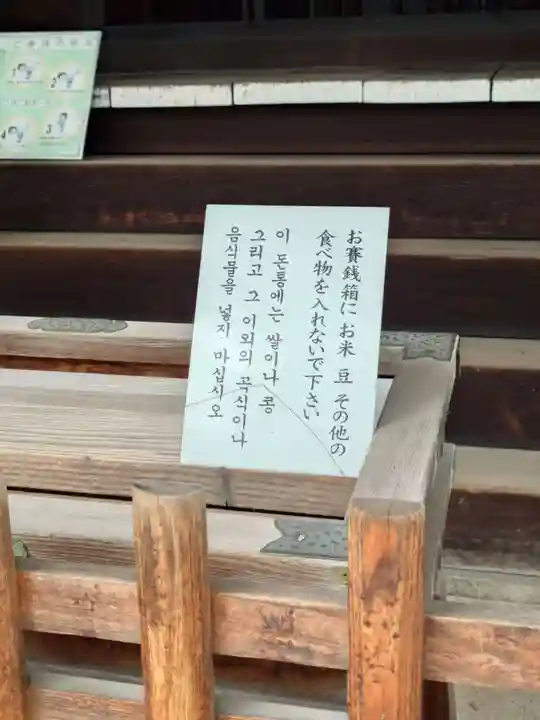 お賽銭箱に お米 豆 その他の
食べ物を入れないで下さい
이 돈통에는 쌀이나 콩
그리고 그 이외의 곡식이나
음식물을 넣지 마십시오
1
2
4
3